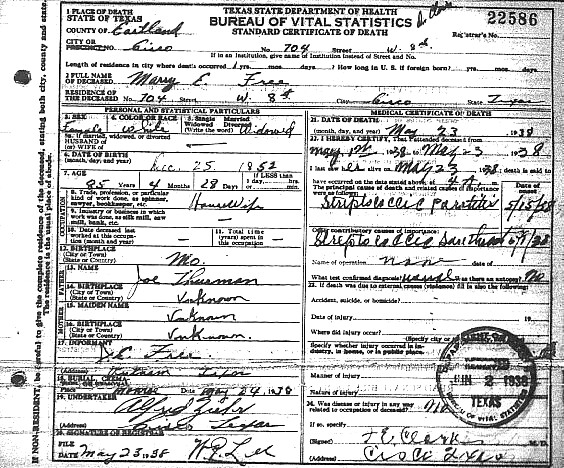 1 PLACE OF DEATH
STATE OF TEXAS
COUNTY OF Eastland
CITY OR
PRECINCT NO. Cisco
TEXAS STATE DEPARTMENT OF HEALTH
BUREAU OF VITAL STATISTICS
STANDARD CERTIFICATE OF DEATH
22586
Registrar's No.
No. 704 Street W. 8th
If in an Institution, give name of Institution instead of Street and No.
Length of residence in city where death occurred yrs. mos. days. How long in U.S. if foreign born? yrs. mos. days
2 FULL NAME
OF DECEASED Mary E. Free
RESIDENCE OF
THE DECEASED No. 704 Street W. 8th City Cisco State Texas
PERSONAL AND STATISTICAL PARTICULARS
3. SEX 4. COLOR OR RACE 5. Single Married Widowed Divorced (Write the word)
Female White Widowed
If married, widowed, or divorced
HUSBAND OF
(or) WIFE OF
6. DATE OF BIRTH
(month, day, and year) Dec. 25, 1852
7. AGE
85 Years 4 Months 28 Days
IF LESS than
1 day,
hrs. min.
OCCUPATION
8. Trade, profession, or particular
kind of work done, as spinner,
sawyer, bookkeeper, etc. Housewife
9. Industry or business in which
work was done, as silk mill, saw
mill, bank, etc.
10. Date deceased last
worked at this occupation
(month and year)
11. Total time
(years) spent in
this occupation
12. BIRTHPLACE
(City or Town)
(State or Country) Mo.
FATHER
13. NAME Joe Thurman
14. BIRTHPLACE
(City or Town)
(State or Country) Unknown
MOTHER
15. MAIDEN NAME Unknown
16. BIRTHPLACE
(City or Town)
(State or Country) Unknown
17. INFORMANT Free
(Address) Putnam Texas
Place Date May 24, 1938
19. UNDERTAKER
(Address) Cisco Texas
20. SIGNATURE OF REGISTRAR
FILE
DATE May 23 1938 Lee
MEDICAL CERTIFICATE OF DEATH
21. DATE OF DEATH
(month, day, and year) May 23 1938
22. I HEREBY CERTIFY, That I attended deceased from
May 1st 1938 to May 23 1938
I last saw er alive on May 23 1938; death is said to
have occurred on the date stated above, at
The principal cause of death and related causes of importance
were as follows: Date of
5/15/38
Other contributory causes of importance:
Name of operation none date of
What test confirmed diagnosis? Was there an autopsy? No
23. If death was due to external causes (violence) fill in also the following:
Accident, suicide, or homicide?
Date of injury 19
Where did injury occur?
(Specify city or
Specify whether injury occurred in
industry, in home, or in public place.
Manner of injury
Nature of injury
24. Was disease or injury in any way
related to occupation of deceased? no
If so, specify
(Signed) T. E. Clark M.D.
(Address) Cisco Texas
JUN 2 1938
TEXAS
BUREAU OF VITAL STATISTICS
IF NON-RESIDENT, be careful to give the complete residence of the deceased, stating both city, county and state.
The residence is the usual place of abode.